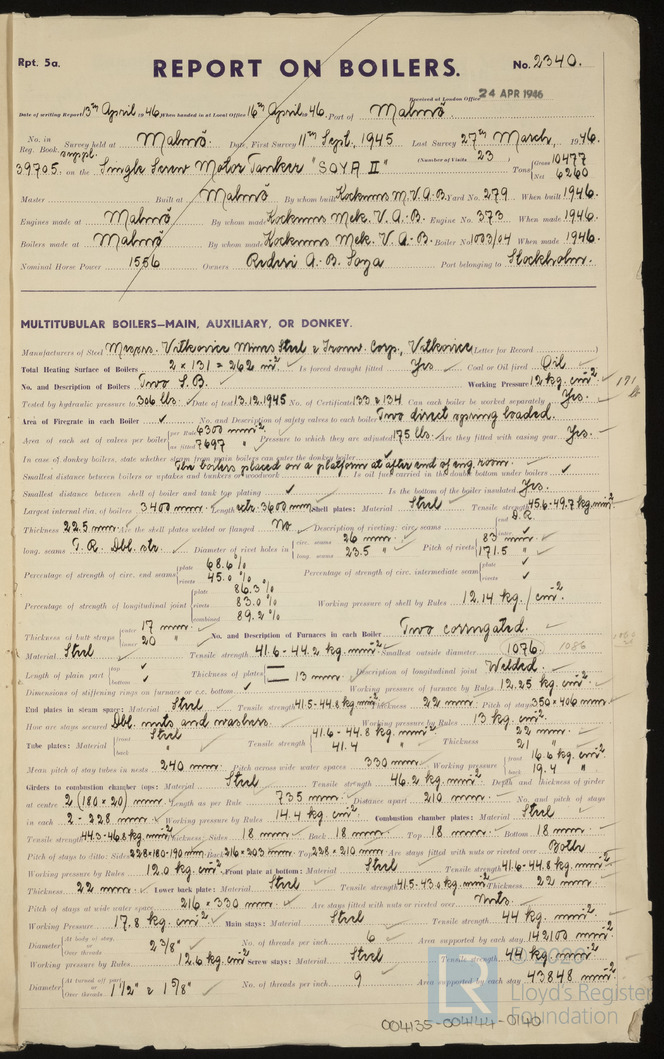 Rpt. 5a.
REPORT ON BOILERS.
No. 2340.
Received at London Office 24 APR 1946
Date of writing Report 13th April 1946 When handed in at Local Office 16th April 1946. Port of Malmö.
No. in Reg. Book. Survey held at Malmö Date, First Survey 11th Sept., 1945 Last Survey 27th March, 1946.
suppl. 39705. on the Single Screw Motor Tanker "SOYA II" (Number of Visits 23 ) Tons Gross 10477 Net 6260
Master Built at Malmö By whom built Kockums M.V.A.B. Yard No. 279 When built 1946.
Engines made at Malmö By whom made Kockums Mek. V. A-B. Engine No. 373 When made 1946.
Boilers made at Malmö By whom made Kockums Mek. V. A-B. Boiler No. 1003/04 When made 1946.
Nominal Horse Power 1556 Owners Rederi A.-B. Soya Port belonging to Stockholm.
MULTITUBULAR BOILERS—MAIN, AUXILIARY, OR DONKEY.
Manufacturers of Steel Messrs. Vitkovice Mines Steel & Ironw. Corp., Vitkovice (Letter for Record )
Total Heating Surface of Boilers 2 x 131 = 262 m² Is forced draught fitted Yes Coal or Oil fired Oil
No. and Description of Boilers Two S.B. Working Pressure 12 kg. cm² 171
Tested by hydraulic pressure to 306 lbs. Date of test 13.12.1945 No. of Certificate 133 & 134 Can each boiler be worked separately Yes.
Area of Firegrate in each Boiler ✓ No. and Description of safety valves to each boiler Two direct spring loaded.
Area of each set of valves per boiler per Rule 6300 mm² as fitted 7697 " Pressure to which they are adjusted 175 lbs. Are they fitted with easing gear Yes.
In case of donkey boilers, state whether steam from main boilers can enter the donkey boiler ✓
The boilers placed on a platform at after end of eng. room.
Smallest distance between boilers or uptakes and bunkers or woodwork Is oil fuel carried in the double bottom under boilers ✓
Smallest distance between shell of boiler and tank top plating ✓ Is the bottom of the boiler insulated Yes.
Largest internal dia. of boilers 3400 mm. Length extr. 3600 mm Shell plates: Material Steel Tensile strength 45.6-49.7 kg. mm²
Thickness 22.5 mm. Are the shell plates welded or flanged No. Description of riveting: circ. seams end D.R.
long. seams T.R. Dbl. str. Diameter of rivet holes in circ. seams 26 mm. long. seams 23.5 " Pitch of rivets 83 mm. 171.5 "
Percentage of strength of circ. end seams plate 68.6 % rivets 45.0 % Percentage of strength of circ. intermediate seam plate ✓ rivets ✓
Percentage of strength of longitudinal joint plate 86.3 % rivets 83.0 % combined 89.2 % Working pressure of shell by Rules 12.14 kg./cm²
Thickness of butt straps outer 17 mm. inner 20 " No. and Description of Furnaces in each Boiler Two corrugated.
Material Steel Tensile strength 41.6-44.2 kg. mm² Smallest outside diameter 1076. 1086
Length of plain part top ✓ bottom ✓ Thickness of plates 13 mm. Description of longitudinal joint Welded.
Dimensions of stiffening rings on furnace or c.c. bottom ✓ Working pressure of furnace by Rules 12.25 kg. cm²
End plates in steam space: Material Steel Tensile strength 41.5-44.8 kg. mm² Thickness 22 mm. Pitch of stays 350 x 406 mm.
How are stays secured Dbl. nuts and washers. Working pressure by Rules 13 kg. cm²
Tube plates: Material front Steel back " Tensile strength 41.6-44.8 kg. mm² 41.4 " Thickness 22 mm. 21 "
Mean pitch of stay tubes in nests 240 mm. Pitch across wide water spaces 330 mm. Working pressure front 16.6 kg. cm² back 19.4 "
Girders to combustion chamber tops: Material Steel Tensile strength 46.2 kg. mm² Depth and thickness of girder
at centre 2 (180 x 20) mm. Length as per Rule 735 mm. Distance apart 210 mm. No. and pitch of stays
in each 2 - 228 mm. Working pressure by Rules 14.4 kg. cm² Combustion chamber plates: Material Steel
Tensile strength 44.3-46.8 kg. mm² Thickness: Sides 18 mm. Back 18 mm. Top 18 mm. Bottom 18 mm.
Pitch of stays to ditto: Sides 228x180-190 mm. Back 216 x 203 mm. Top 228 x 210 mm. Are stays fitted with nuts or riveted over Both
Working pressure by Rules 12.0 kg. cm² Front plate at bottom: Material Steel Tensile strength 41.6-44.8 kg. mm²
Thickness 22 mm. Lower back plate: Material Steel Tensile strength 41.5-43.0 kg. mm² Thickness 22 mm.
Pitch of stays at wide water space 216 x 330 mm. Are stays fitted with nuts or riveted over Nuts.
Working Pressure 17.8 kg. cm² Main stays: Material Steel Tensile strength 44 kg. mm²
Diameter At body of stay, or Over threads 2 3/8" No. of threads per inch 6 Area supported by each stay 142100 mm²
Working pressure by Rules 12.6 kg. cm² Screw stays: Material Steel Tensile strength 44 kg. mm²
Diameter At turned off part, or Over threads 1 1/2" & 1 5/8" No. of threads per inch 9 Area supported by each stay 43848 mm²
© 2020
LR
Lloyd's Register
Foundation
004135-004144-0140